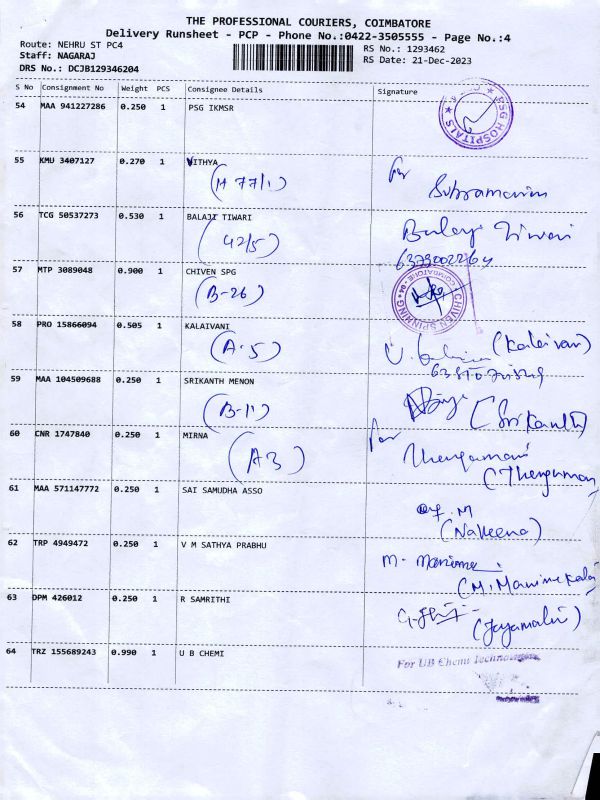 THE PROFESSIONAL COURIERS, COIMBATORE
Delivery Runsheet - PCP - Phone No.:0422-3505555 - Page No.:4
Route: NEHRU ST PC4
Staff: NAGARAJ
DRS No.: DCJB129346204
RS No.: 1293462
RS Date: 21-Dec-2023
S No Consignment No Weight PCS Consignee Details Signature
54 MAA 941227286 0.250 1 PSG IKMSR
PSG HOSPITALS
55 KMU 3407127 0.270 1 VITHYA for
(H 77/1) Subramanian
56 TCG 50537273 0.530 1 BALAJI TIWARI Balaji Tiwari
(42/5) 6379002264
57 MTP 3089048 0.900 1 CHIVEN SPG
(B-26) CHIVEN SPINNING COIMBATORE
58 PRO 15866094 0.505 1 KALAIVANI
(A-5) (Kalaivani)
59 MAA 104509688 0.250 1 SRIKANTH MENON
(B-11) (Srikanth)
60 CNR 1747840 0.250 1 MIRNA for
(A3) Thengamani
(Thengumani)
61 MAA 571147772 0.250 1 SAI SAMUDHA ASSO
(Naveena)
62 TRP 4949472 0.250 1 V M SATHYA PRABHU
(M. Manimekalai)
63 DPM 426012 0.250 1 R SAMRITHI
(Jayamalar)
64 TRZ 155689243 0.990 1 U B CHEMI
For UB Chemi Technologies